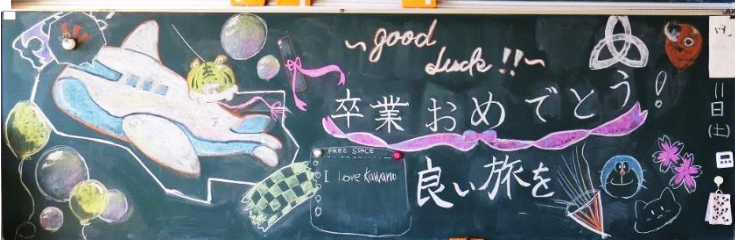 ~good
luck!!~
卒業おめでとう!
良い旅を
FREE SPACE
I love Kawano
11
日
(土)